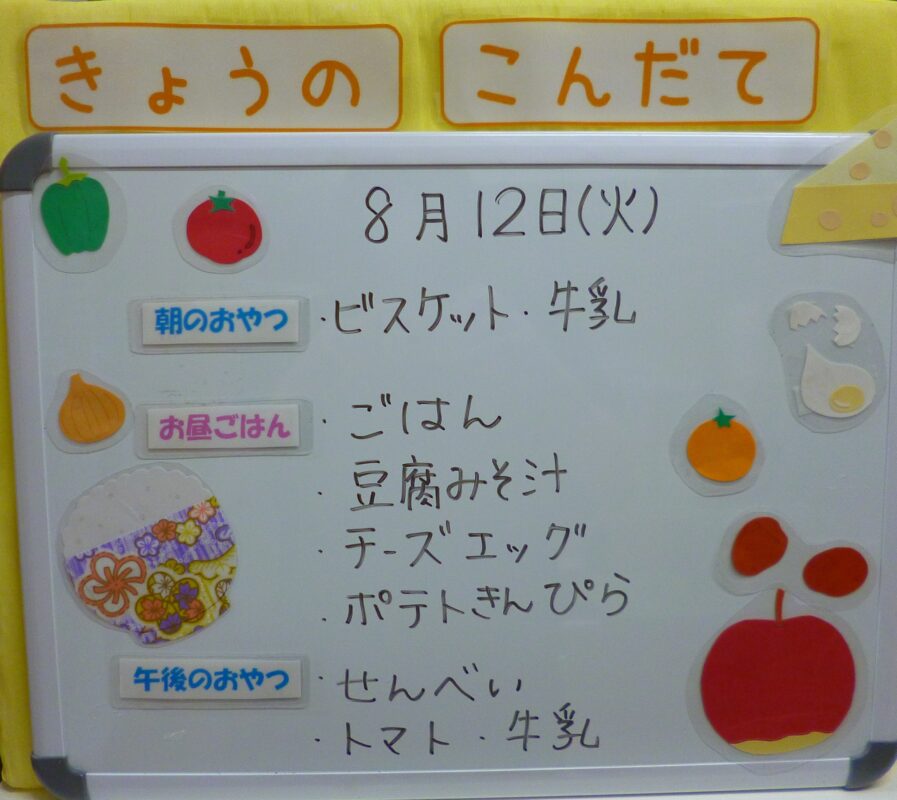 きょうの こんだて
8月12日(火)
朝のおやつ ・ビスケット・牛乳
お昼ごはん ・ごはん
・豆腐みそ汁
・チーズエッグ
・ポテトきんぴら
午後のおやつ ・せんべい
・トマト・牛乳